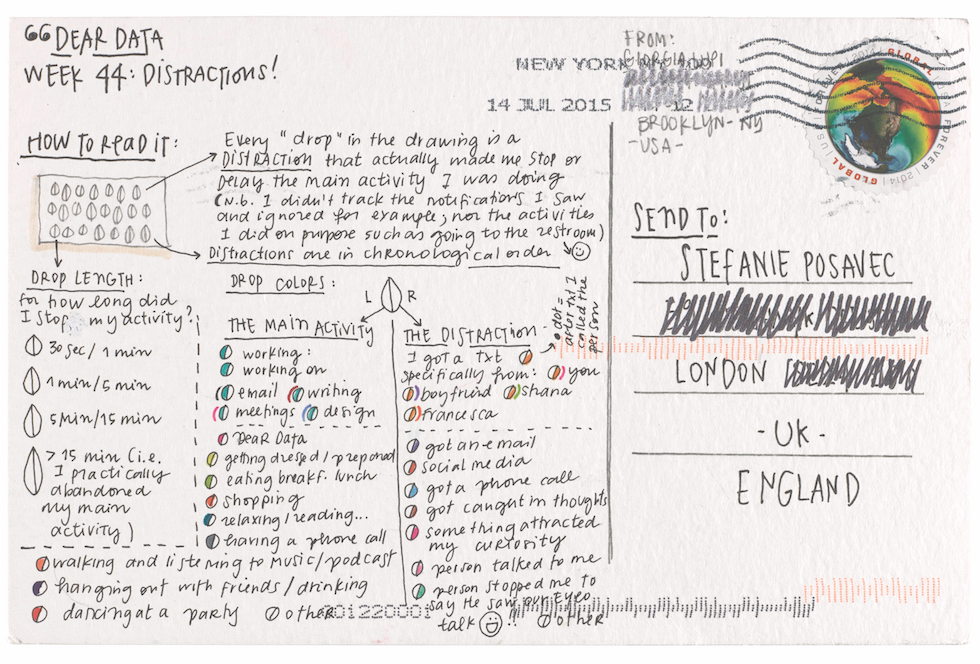 DEAR DATA
WEEK 44: DISTRACTIONS!
NEW YORK NY 100
14 JUL 2015 12
FROM:
GIORGIA LUPI
BROOKLYN - NY
- USA -
GLOBAL | USA FOREVER 2014 | GLOBAL | USA FOREVER 2014
HOW TO READ IT:
Every "drop" in the drawing is a
DISTRACTION that actually made me stop or
DELAY the main activity I was doing
(N.B. I didn't track the notifications I saw
and ignored for example; nor the activities
I did on purpose such as going to the restroom)
Distractions are in chronological order
DROP LENGTH:
for how long did
I stop my activity?
30 sec / 1 min
1 min / 5 min
5 min / 15 min
> 15 min (i.e.
I practically
abandoned
my main
activity)
DROP COLORS:
L R
THE MAIN ACTIVITY
working:
working on
email writing
meetings design
DEAR DATA
getting dressed / prepared
eating breakf. lunch
shopping
relaxing / reading...
having a phone call
walking and listening to music / podcast
hanging out with friends / drinking
dancing at a party other
THE DISTRACTION
I got a txt
specifically from: you
boyfriend shana
francesca
• dot =
after txt I
called the
person
got an email
social media
got a phone call
got caught in thoughts
something attracted
my curiosity
person talked to me
person stopped me to
say he saw our Eyeo
talk !! other
01220001
SEND TO:
STEFANIE POSAVEC
LONDON
- UK -
ENGLAND